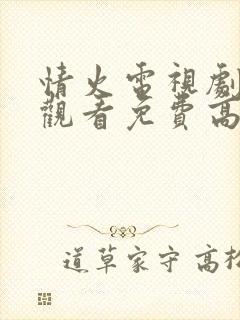 情火電視劇
觀看免費高
道草家守 高松